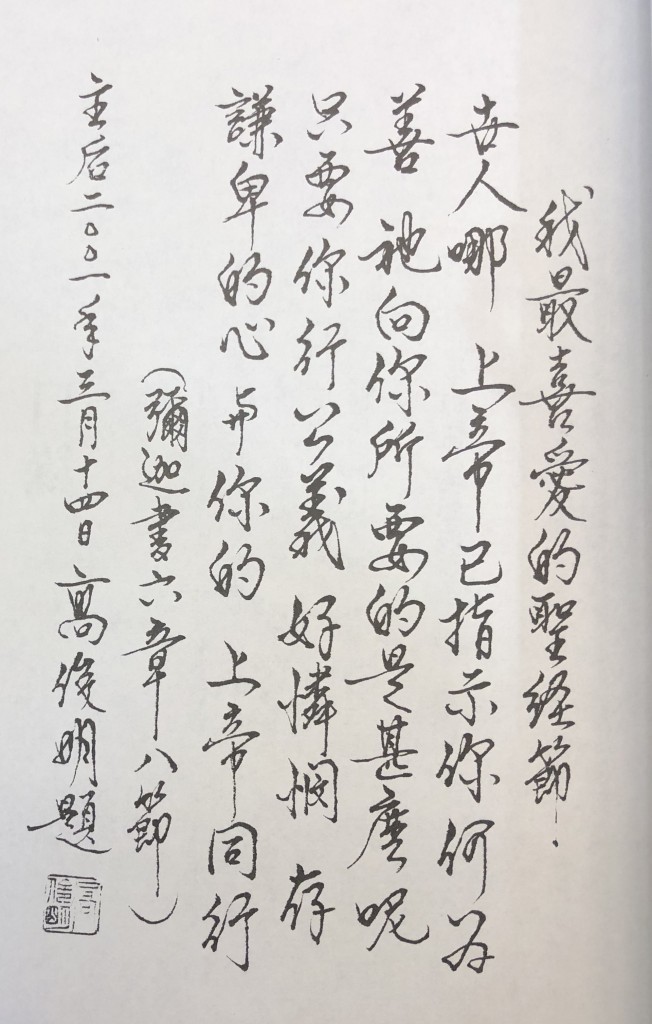 我最喜愛的聖経節.
世人哪 上帝已指示你何为
善 祂向你所要的是甚麼呢
只要你行公義 好憐憫 存
謙卑的心 与你的 上帝同行
(彌迦書六章八節)
主后二〇〇一年三月十四日 高俊明題